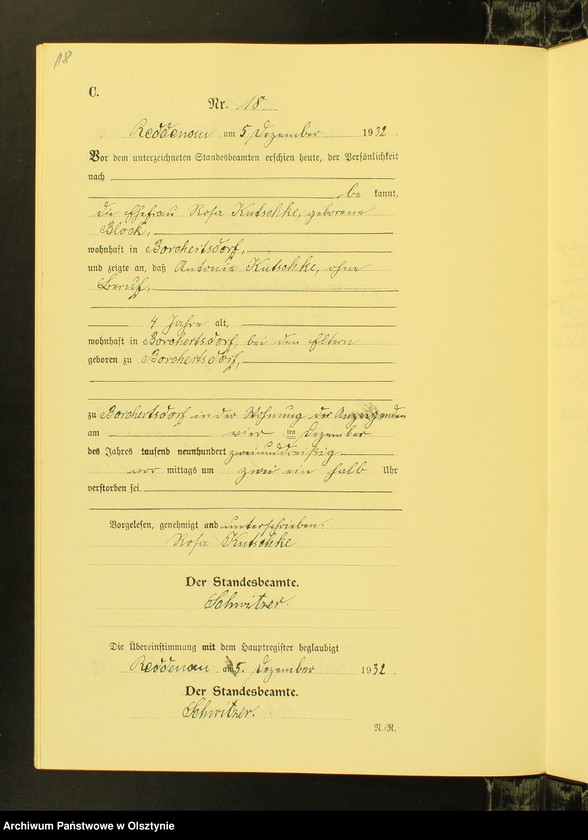 18
C.
Nr. 18.
Reddenau am 5. Dezember 1932.
Vor dem unterzeichneten Standesbeamten erschien heute, der Persönlichkeit
nach
be kannt,
die Ehefrau Rosa Kutschke, geborene
Block,
wohnhaft in Borchertsdorf,
und zeigte an, daß Antonie Kutschke, ohne
Beruf,
4 Jahre alt,
wohnhaft in Borchertsdorf, bei den Eltern
geboren zu Borchertsdorf,
zu Borchertsdorf in der Wohnung der Anzeigenden
am vier ten Dezember
des Jahres tausend neunhundert zweiunddreißig
vor mittags um zwei ein halb Uhr
verstorben sei.
Vorgelesen, genehmigt und unterschrieben.
Rosa Kutschke
Der Standesbeamte.
Schwitzer.
Die Übereinstimmung mit dem Hauptregister beglaubigt
Reddenau am 5. Dezember 1932
Der Standesbeamte.
Schwitzer.
R./R.
Archiwum Państwowe w Olsztynie